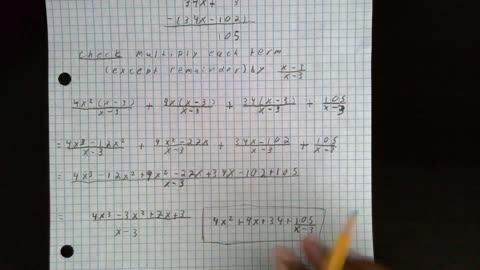 34x+ 3
-(34x-102)
105
Check Multiply each term
(except remainder) by x-3/x-3
4x²(x-3)/x-3 + 9x(x-3)/x-3 + 34(x-3)/x-3 + 105/x-3
= 4x³-12x²/x-3 + 9x²-27x/x-3 + 34x-102/x-3 + 105/x-3
= 4x³-12x²+9x²-27x+34x-102+105/x-3
= 4x³-3x²+7x+3/x-3 4x²+9x+34+105/x-3